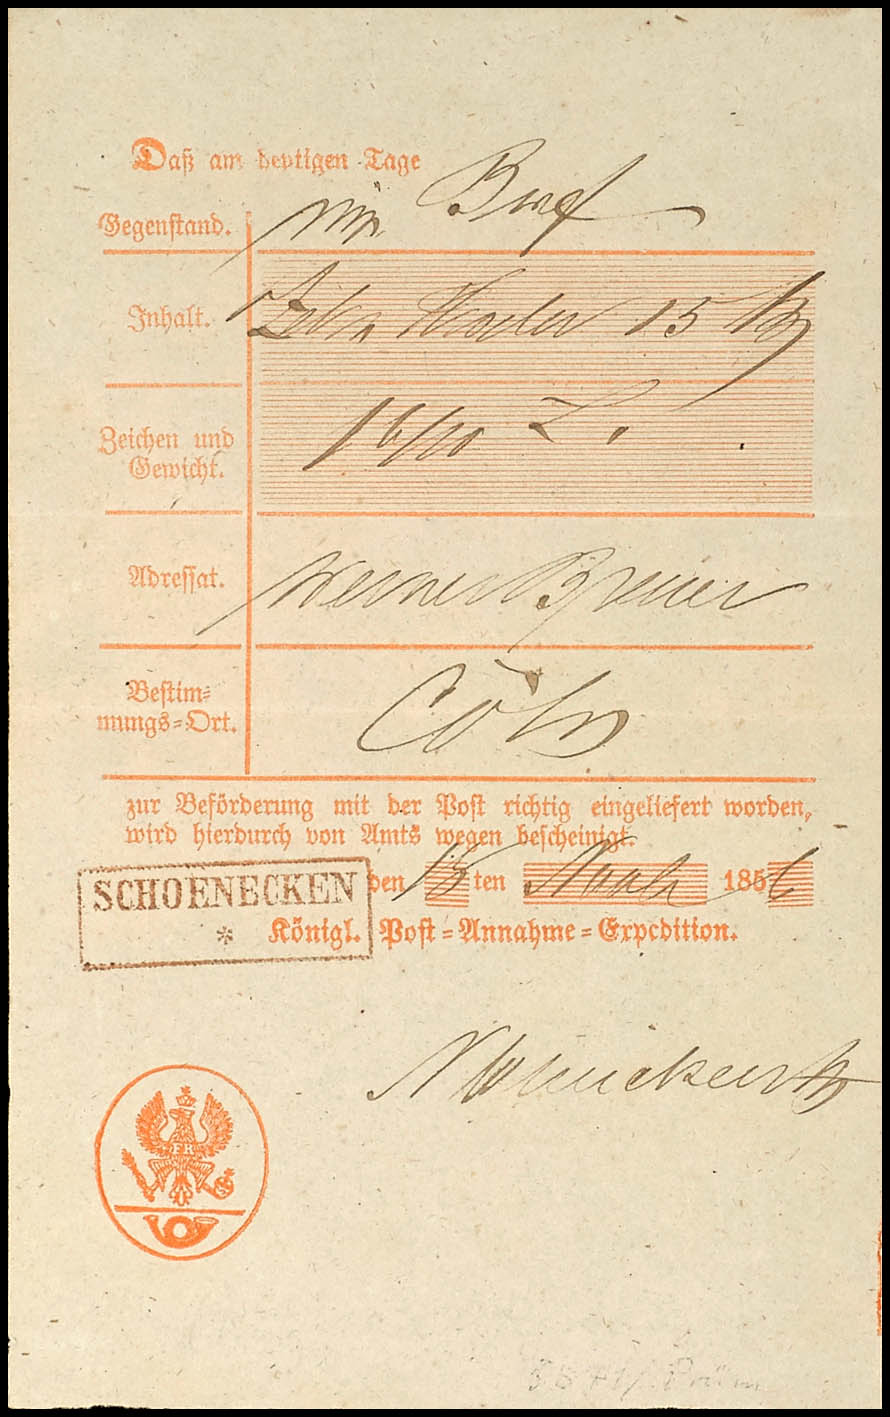 Daß am heutigen Tage
Gegenstand. ein Brief
Inhalt. Zehn Thaler 15
Zeichen und
Gewicht. 1 6/10 L.
Adressat. Werner Breuer
Bestim=
mungs=Ort. Cöln
zur Beförderung mit der Post richtig eingeliefert worden,
wird hierdurch von Amts wegen bescheinigt.
SCHOENECKEN den 18 ten 185
* Königl. Post=Annahme=Expedition.
FR
Prüm